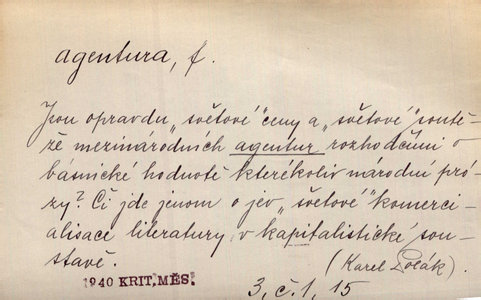 agentura, f.
Jsou opravdu „světové“ ceny a „světové“ soutě-
že mezinárodních agentur rozhodčími o
básnické hodnotě kterékoliv národní pró-
zy? Či jde jenom o jev „světové“ komerci-
alisace literatury v kapitalistické sou-
stavě.
(Karel Polák).
1940 KRIT. MĚS. 3, č. 1, 15